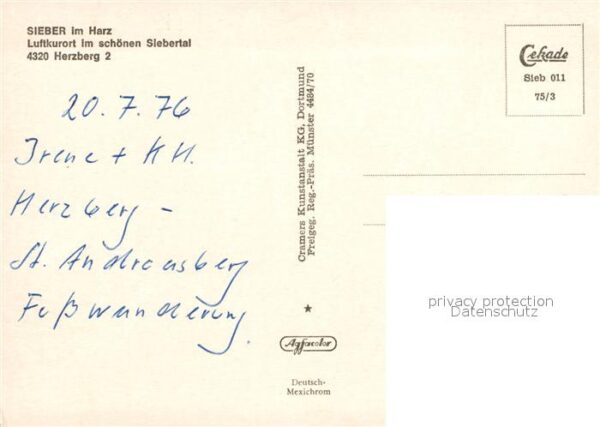 SIEBER im Harz
Luftkurort im schönen Siebertal
4320 Herzberg 2
20.7.76
Irene + KH.
Herzberg -
St. Andreasberg
Fußwanderung.
Cramers Kunstanstalt KG, Dortmund
Freigeg. Reg.-Präs. Münster 4484/70
Agfacolor
Deutsch-
Mexichrom
Cekade
Sieb 011
75/3
privacy protection
Datenschutz